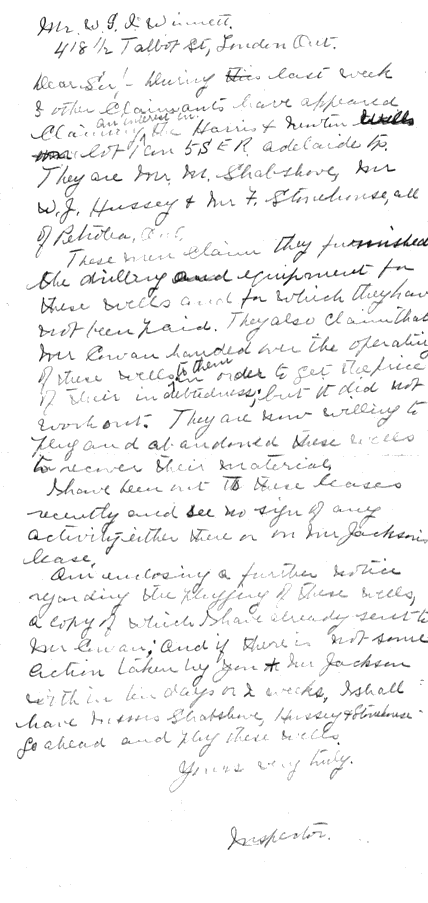 Mr. W. G. I. Winnett.
418 1/2 Talbot St, London Ont.
Dear Sir:- During this last week
3 other Claimants have appeared
an interest in
Claiming the Harris & Newton Wells
lot 1 Con 5 S E R. Adelaide Tp.
They are Mr. M. Shabshove, Mr
W. J. Hussey & Mr F. Stonehouse, all
of Petrolea, Ont,
These men claim they furnished
the drilling and equipment for
these wells and for which they have
not been paid. They also claim that
Mr Cowan handed over the operating
of these wells to them in order to get the price
of their indebtedness; but it did not
work out. They are now willing to
plug and abandoned these wells
to recover their material,
I have been out to these leases
recently and see no sign of any
activity either there or on Mr Jackson's
lease,
Am enclosing a further notice
regarding the plugging of these wells,
a copy of which I have already sent to
Mr Cowan; and if there is not some
action taken by you & Mr Jackson
within ten days or 2 weeks, I shall
have Messrs Shabshove, Hussey & Stonehouse
go ahead and plug these wells.
Yours very truly.
Inspector.